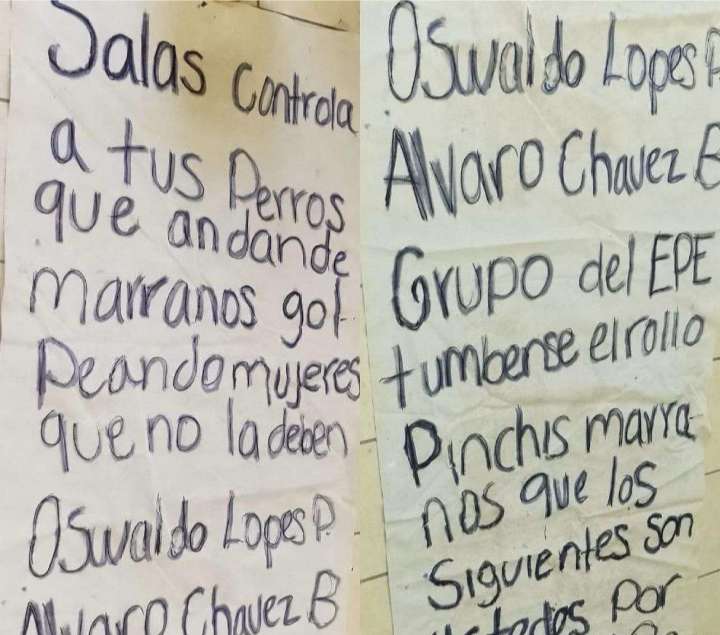 Salas controla
a tus Perros
que andande
marranos gol
Peando mujeres
que no la deben
Oswaldo Lopes P
Alvaro Chavez B
Oswaldo Lopes P
Alvaro Chavez B
Grupo del EPE
tumbense el rollo
Pinchis marra
nos que los
Siguientes son
ustedes Por